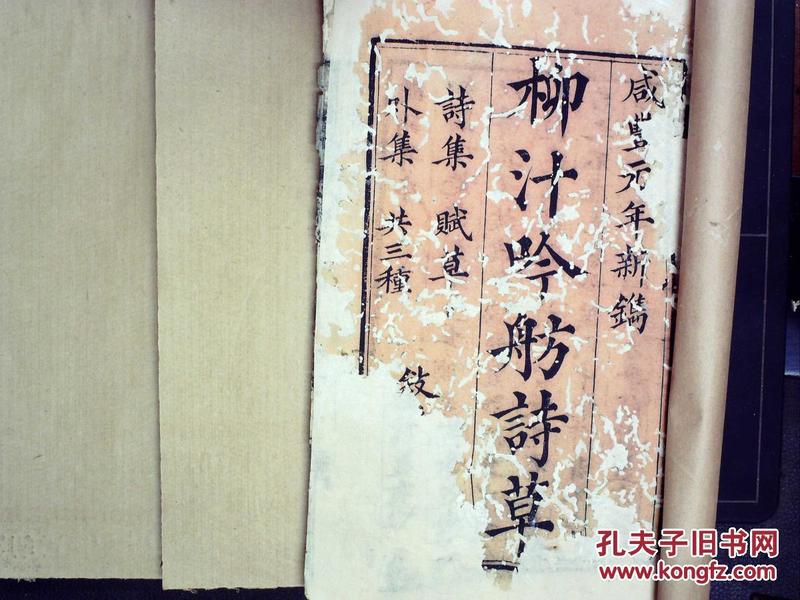 咸豐元年新鐫
柳汁吟舫詩草
詩集 賦草
外集 共三種
孔夫子旧书网
www.kongfz.com